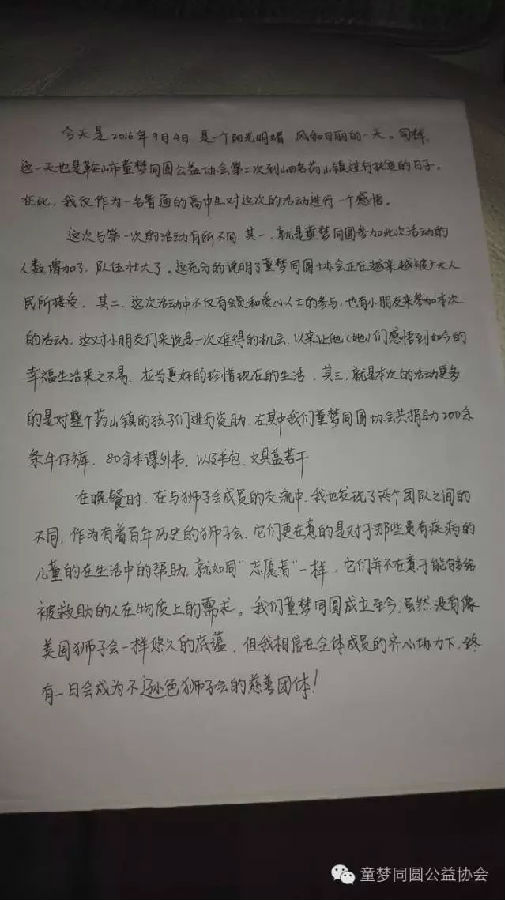 今天是2016年9月4日 是一个阳光明媚 风和日丽的一天。同样,
这一天也是鞍山市童梦同圆公益协会第二次到岫岩药山镇进行扶贫的日子。
在此, 我仅作为一名普通的高中生对这次的活动进行一个感悟。
这次与第一次的活动有所不同 其一, 就是童梦同圆参加此次活动的
人数增加了, 队伍壮大了, 这充分的说明了童梦同圆协会正在越来越被广大人
民所接受, 其二, 这次活动中不仅有会员和爱心人士的参与, 也有小朋友来参加本次
的活动, 这对小朋友们来说是一次难得的机会, 以来让他(她)们感悟到如今的
幸福生活来之不易, 应当更好的珍惜现在的生活, 其三, 就是本次的活动更多
的是对整个药山镇的孩子们进行资助, 在其中我们童梦同圆协会共捐助200余
条牛仔裤, 80余本课外书, 以及书包, 文具盒若干
在晚餐时, 在与狮子会成员的交流中, 我也发现了两个团队之间的
不同, 作为有着百年历史的狮子会, 它们更在意的是对于那些患有疾病的
儿童的在生活中的帮助, 就如同"志愿者"一样, 它们并不在意于能否给
被救助的人在物质上的需求。我们童梦同圆成立至今, 虽然没有像
美国狮子会一样悠久的底蕴, 但我相信在全体成员的齐心协力下, 终
有一日会成为不逊色狮子会的慈善团体!
童梦同圆公益协会